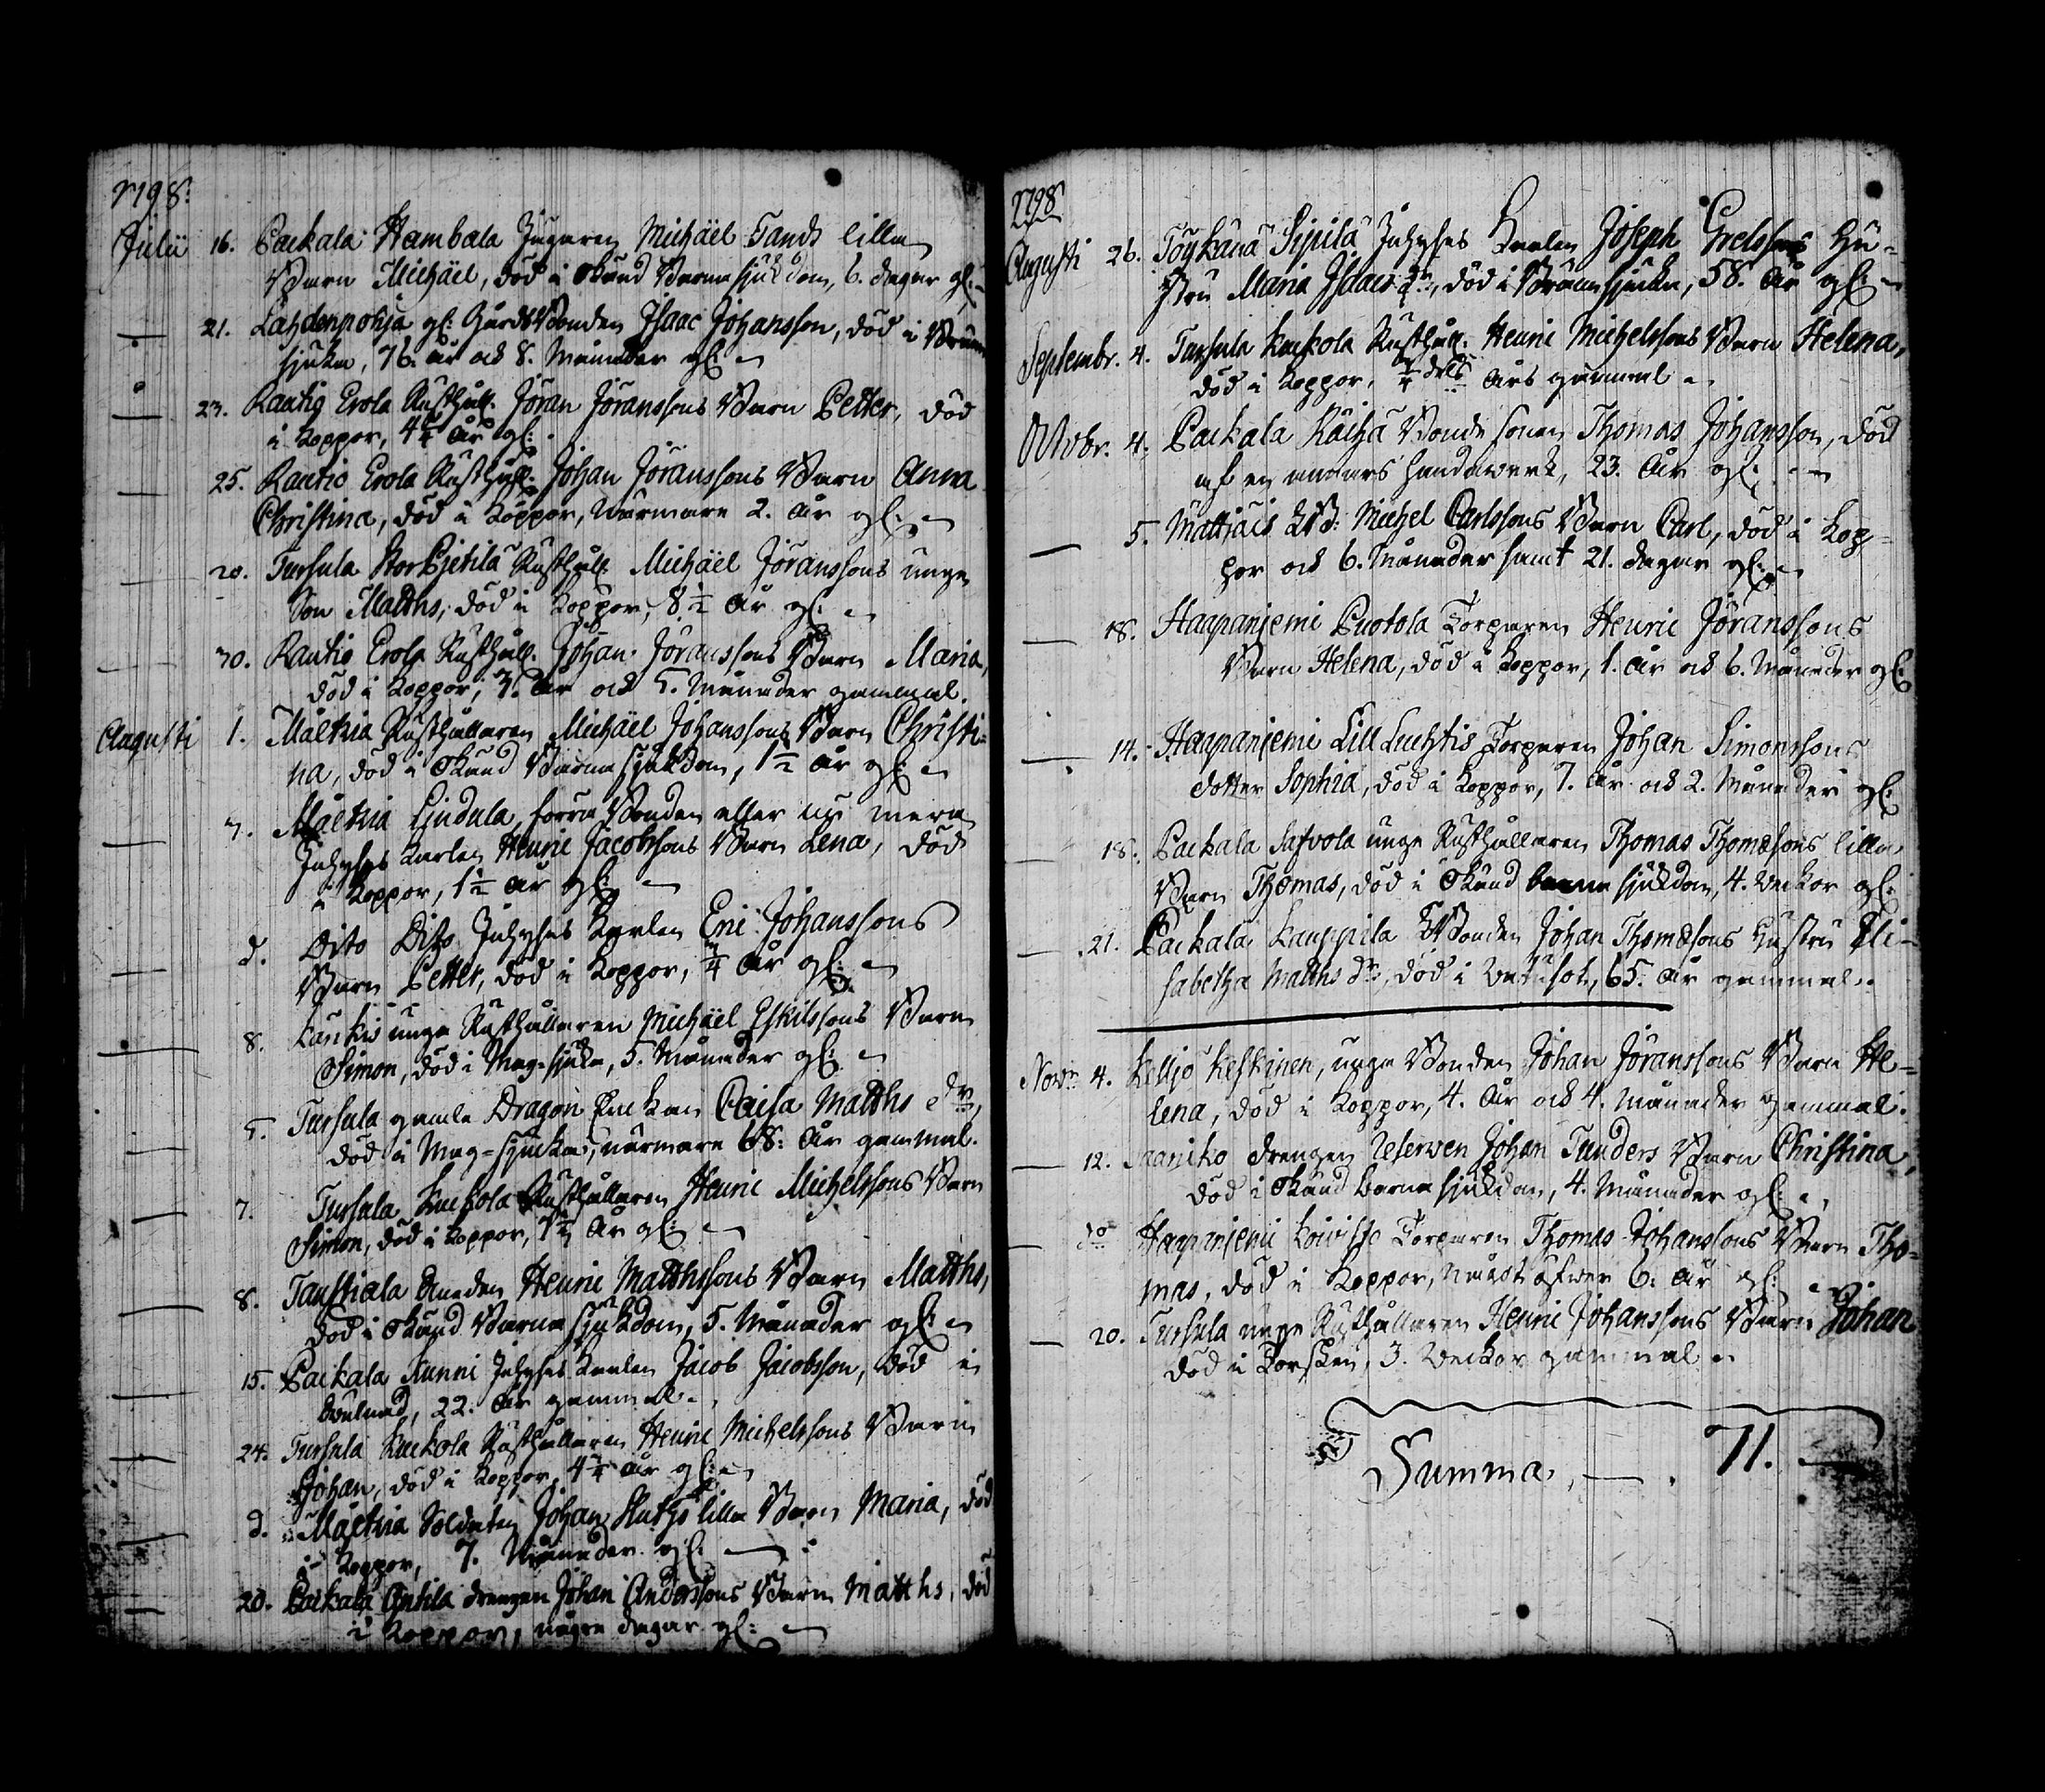 1798.
Julii 16. Packala Hambala Jngaren Michäel Sands lilla
Barn Michäel, död i okänd Barnasjukdom, 6. dagar gl:
21. Lahdenpohja gl: Gårds Bonden Jsaac Johansson, död i Bröst
sjuka, 76. år och 8. Månader gl:
23. Rautio Erola Rusthåll. Jöran Jöranssons Barn Petter, död
i koppor, 4 1/4 år gl:
25. Rautio Erola Rusthåll. Johan Jöranssons Barn Anna
Christina, död i koppor, närmare 2. år gl:
20. Tursula StorPjetilä Rusthåll. Michäel Jöranssons unge
Son Matths, död i koppor, 8 1/2 år gl:
30. Rautio Erola Rusthåll. Johan Jöranssons Barn Maria,
död i koppor, 7. år och 5. Månader gammal.
Augusti 1. Mälkiä Rusthållaren Michäel Johanssons Barn Christi-
na, död i okänd Barnasjukdom, 1 1/2 år gl:
3. Mälkiä Lindula, förra Bonden eller nu mera
Jnhyses Karlen Henric Jacobssons Barn Lena, död
i koppor, 1 1/2 år gl:
d. Dito Dito Jnhyses Karlen Eric Johanssons
Barn Petter, död i koppor, 3/4 år gl:
8. Kaukis unge Rusthållaren Michäel Eskilssons Barn
Simon, död i Mag-sjuka, 5. Månader gl:
5. Tursula gamla Dragon Enkan Caisa Matths dr,
död i Mag-sjuka, närmare 68. år gammal.
7. Tursula Kuckola Rusthållaren Henric Michelssons Barn
Simon, död i koppor, 1 1/2 år gl:
8. Taustiala Bonden Henric Matthssons Barn Matths,
död i okänd Barnasjukdom, 5. Månader gl:
15. Packala Nunni Jnhyses Karlen Jacob Jacobsson, död i
22. år gammal.
24. Tursula Kuckola Rusthållaren Henric Michelssons Barn
Johan, död i koppor, 4 1/4 år gl:
d. Mälkiä Soldaten Johan lilla Barn Maria, död
i koppor, 7. Månader gl:
20. Packala Antila drengen Johan Anderssons Barn Matths, död
i koppor, några dagar gl:
1798
Augusti 26. Töykänä Sipilä Jnhyses Karlen Joseph Grelssons Hu-
stru Maria Jsaacs dr, död i Brännsjuka, 58. år gl:
Septembr. 4. Tursula Kuckola Rusthåll. Henric Michelssons Barn Helena,
död i koppor, 3/4 dels års gammal.
Octobr. 4. Packala Räihä Bonde sonen Thomas Johansson, död
af en annars handawerk, 23. år gl:
5. Mattjäis Michel Carlssons Barn Carl, död i kop-
por och 6. Månader samt 21. dagar gl:
18. Haapanjemi Puotola Torparen Henric Jöranssons
Barn Helena, död i koppor, 1. år och 6. Månader gl:
14. Haapanjemi Lill Luchtis Torparen Johan Simonssons
dotter Sophia, död i koppor, 7. år och 2. Månader gl:
18. Packala Safvola unge Rusthållaren Thomas Thomæsons lilla
Barn Thomas, död i okänd barna sjukdom, 4. veckor gl:
21. Packala Kauppila Bonden Johan Thomæsons Hustru Eli-
sabetha Matths dr, död i 65. år gammal.
Novbr. 4. Keljo Keskinen, unge Bonden Johan Jöranssons Barn He-
lena, död i koppor, 4. år och 4. månader gammal.
12. drengen Johan Tunders Barn Christina,
död i okänd barna sjukdom, 4. Månader gl:
do Haapanjemi Koivisto Torparen Thomas Johanssons Barn Tho-
mas, död i koppor, något öfwer 6. år gl:
20. Tursula unge Rusthållaren Henric Johanssons Barn Johan
död i Torsken, 3. veckor gammal
Summa. 71.